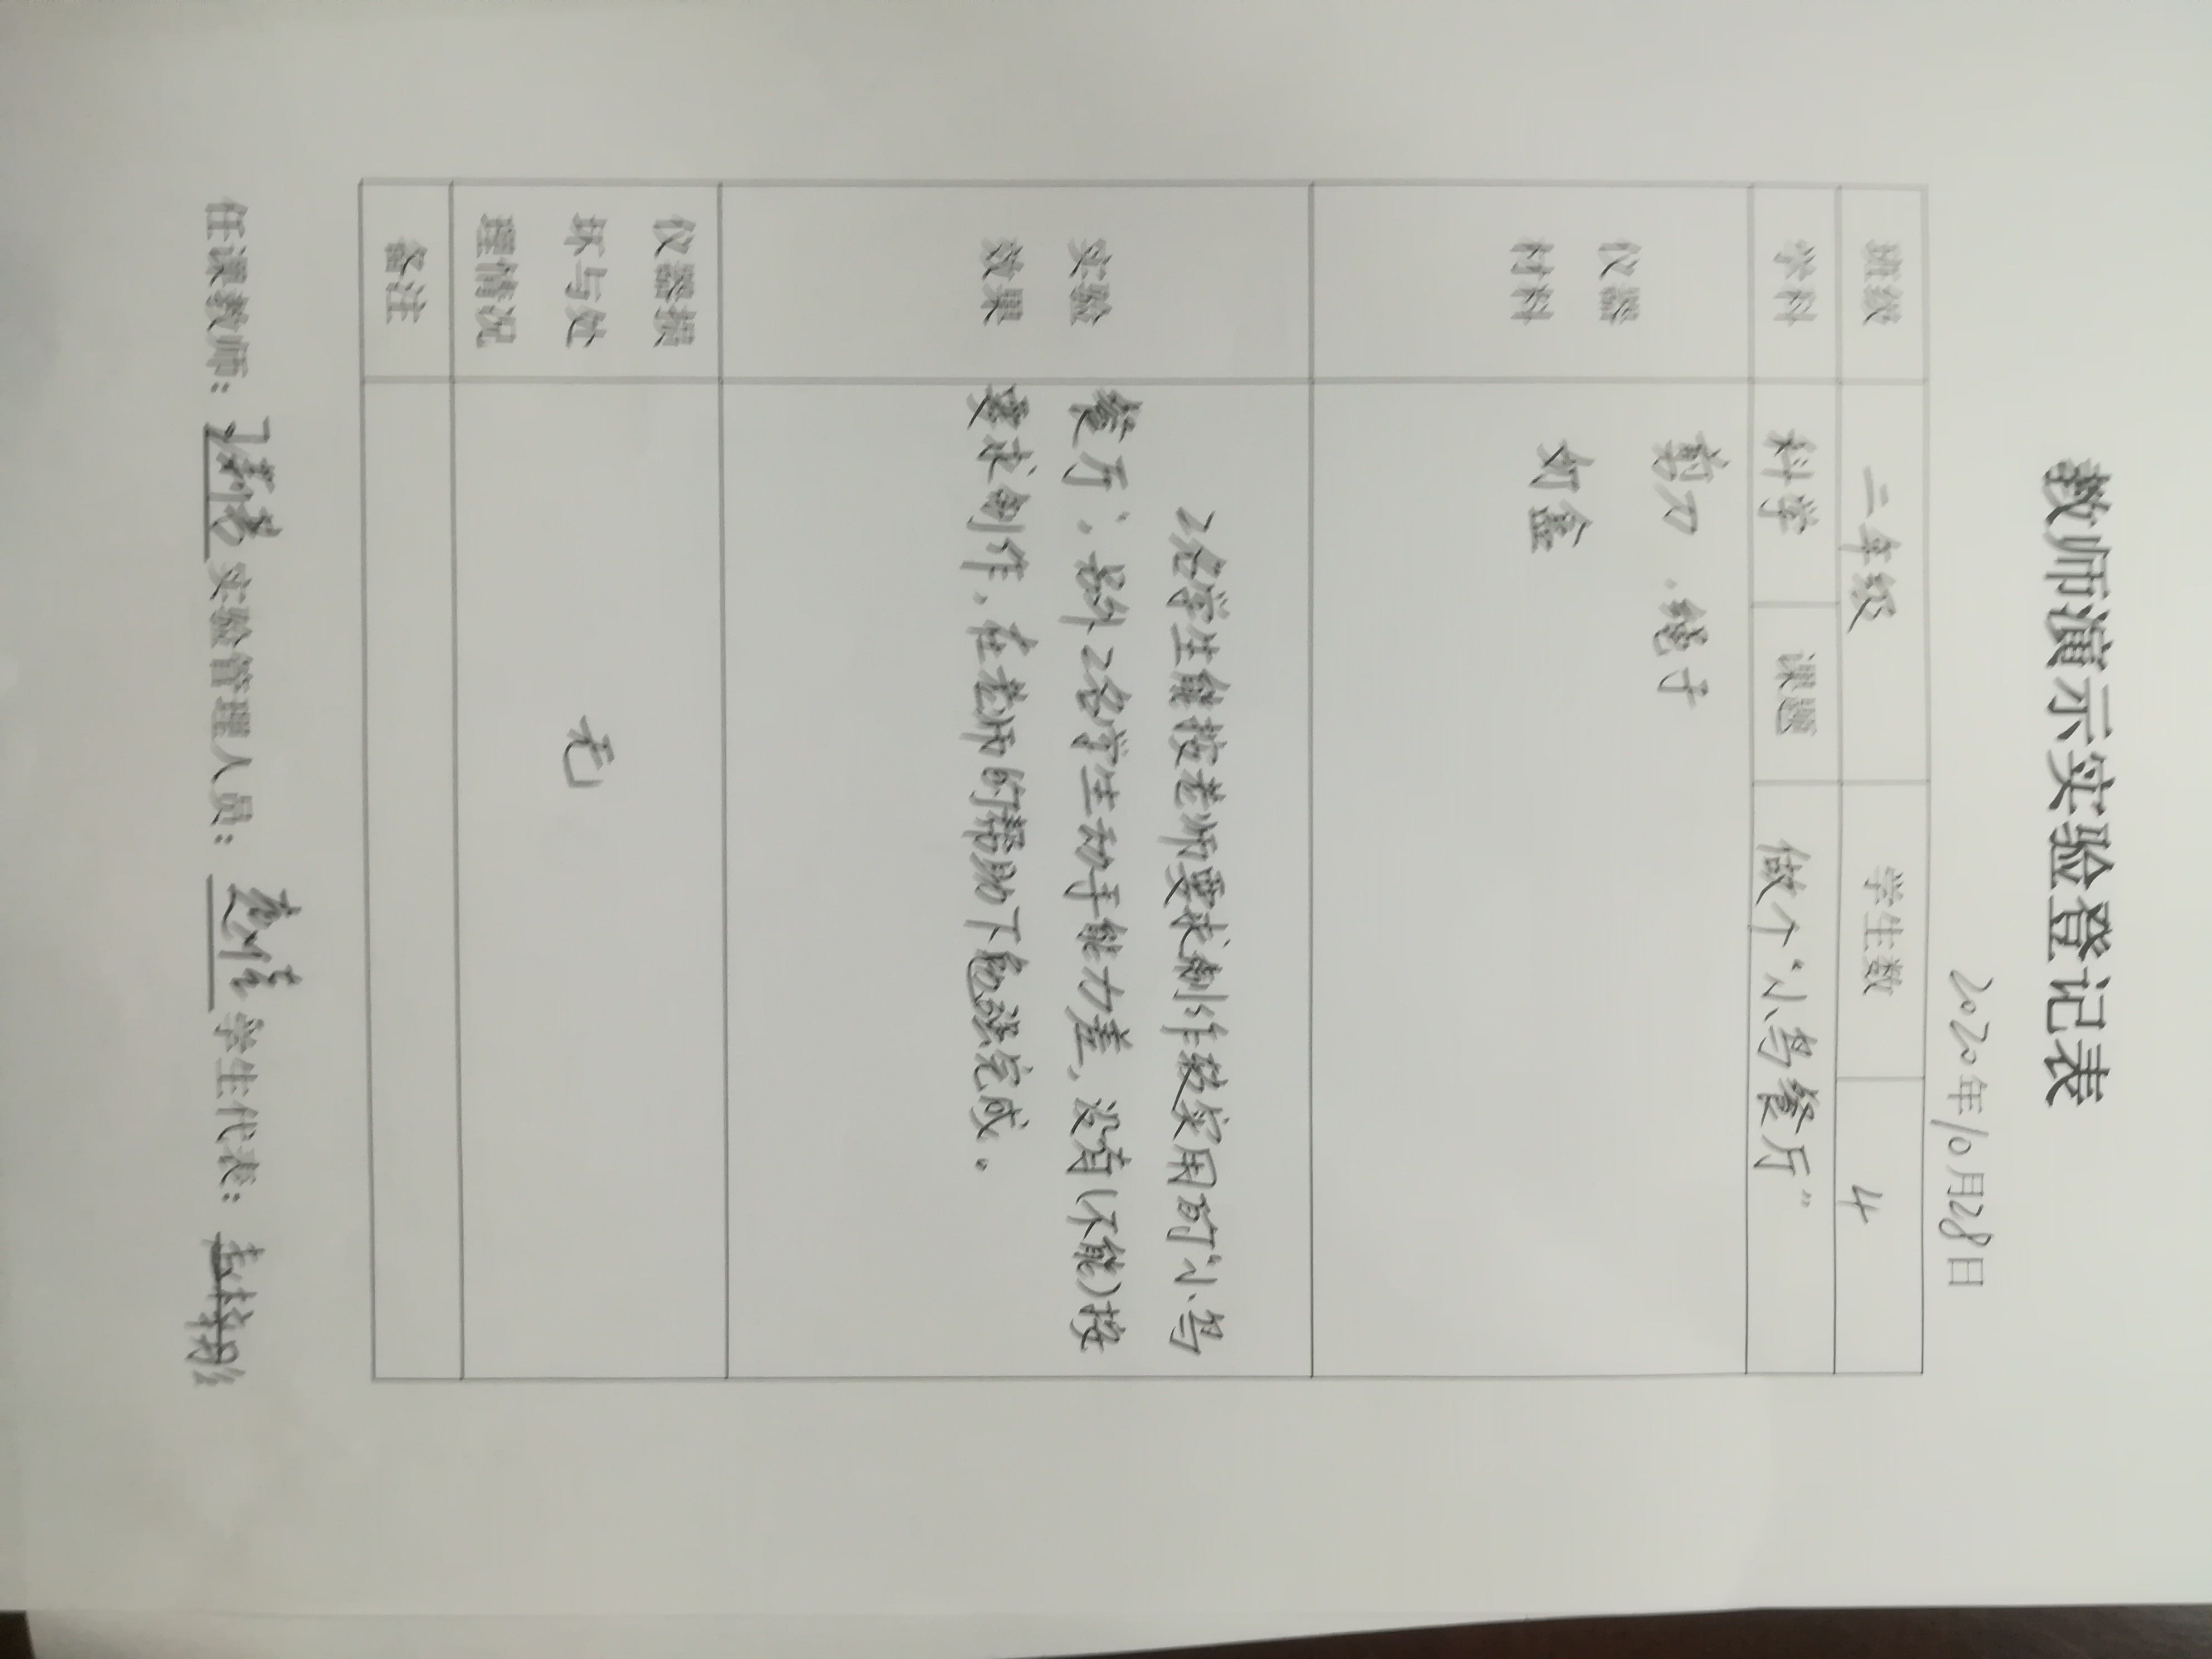 教师演示实验登记表
2020年10月28日
班级 二年级 学生数 4
学科 科学 课题 做个“小鸟餐厅”
仪器
材料
剪刀、绳子
效果
实验
2名学生能按老师要求制作较实用的“小鸟
餐厅”，另外2名学生动手能力差，没有(不能)按
要求制作，在老师的帮助下勉强完成。
仪器损
坏与处
理情况
无
备注
任课教师： 实验管理人员： 学生代表：